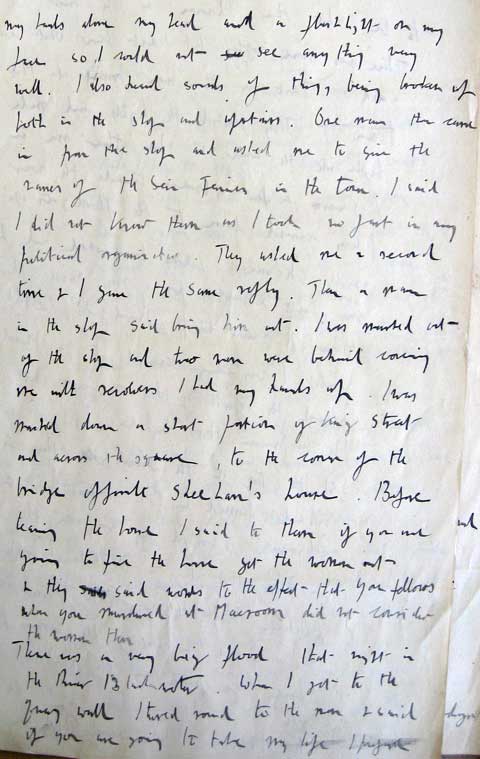 my hands above my head and a flashlight on my
face so I could not see anything very
well. I also heard sounds of things being broken up
both in the shop and upstairs. One man then came
in from the shop and asked me to give the
names of the Sein Feiners in the town. I said
I did not know them as I took no part in any
political organisation. They asked me a second
time & I gave the same reply. Then a man
in the shop said bring him out. I was marched out
of the shop and two men were behind covering
me with revolvers I had my hands up. I was
marched down a short portion of King Street
and across the square, to the corner of the
bridge opposite Sheehan's house. Before
leaving the house I said to them if you are
going to fire the house get the women out
& they said words to the effect that you fellows
when you murdered at Macroom did not consider
the women then
There was a very big flood that night in
the River Blackwater. When I got to the
Quay wall I turned round to the men & said
if you are going to take my life